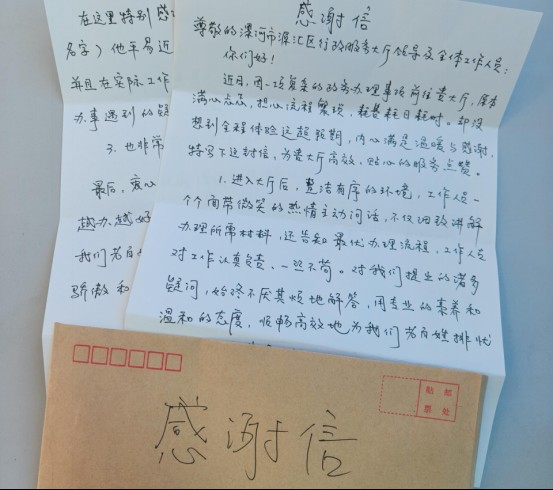 感谢信
尊敬的漯河市源汇区行政服务大厅领导及全体工作人员：
你们好！
近日，因一项复杂的政务办理事项前往贵大厅，原本
满心忐忑，担心流程繁琐，耗费耗日耗时。却没
想到全程体验远超预期，内心满是温暖与感谢，
特写下这封信，为贵大厅高效、贴心的服务点赞。
1.进入大厅后，整洁有序的环境，工作人员一
个个面带微笑的热情主动问话，不仅细致讲解
办理所需材料，还告知最优办理流程，工作人员
对工作认真负责、一丝不苟。对我们提出的诸多
疑问，始终不厌其烦地解答，用专业的素养和
温和的态度，顺畅高效地为我们老百姓排忧
在这里特别感
名字）他平易近
并且在实际工作
办事遇到的疑
3.也非常
最后，衷心
越办越好
我们老百
骄傲和
感谢信
贴 邮
票 处